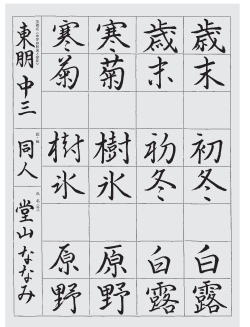 歳末
初冬
白露
歳末
初冬
白露
寒菊
樹氷
原野
寒菊
樹氷
原野
東朋 中三
同人
堂山 ななみ